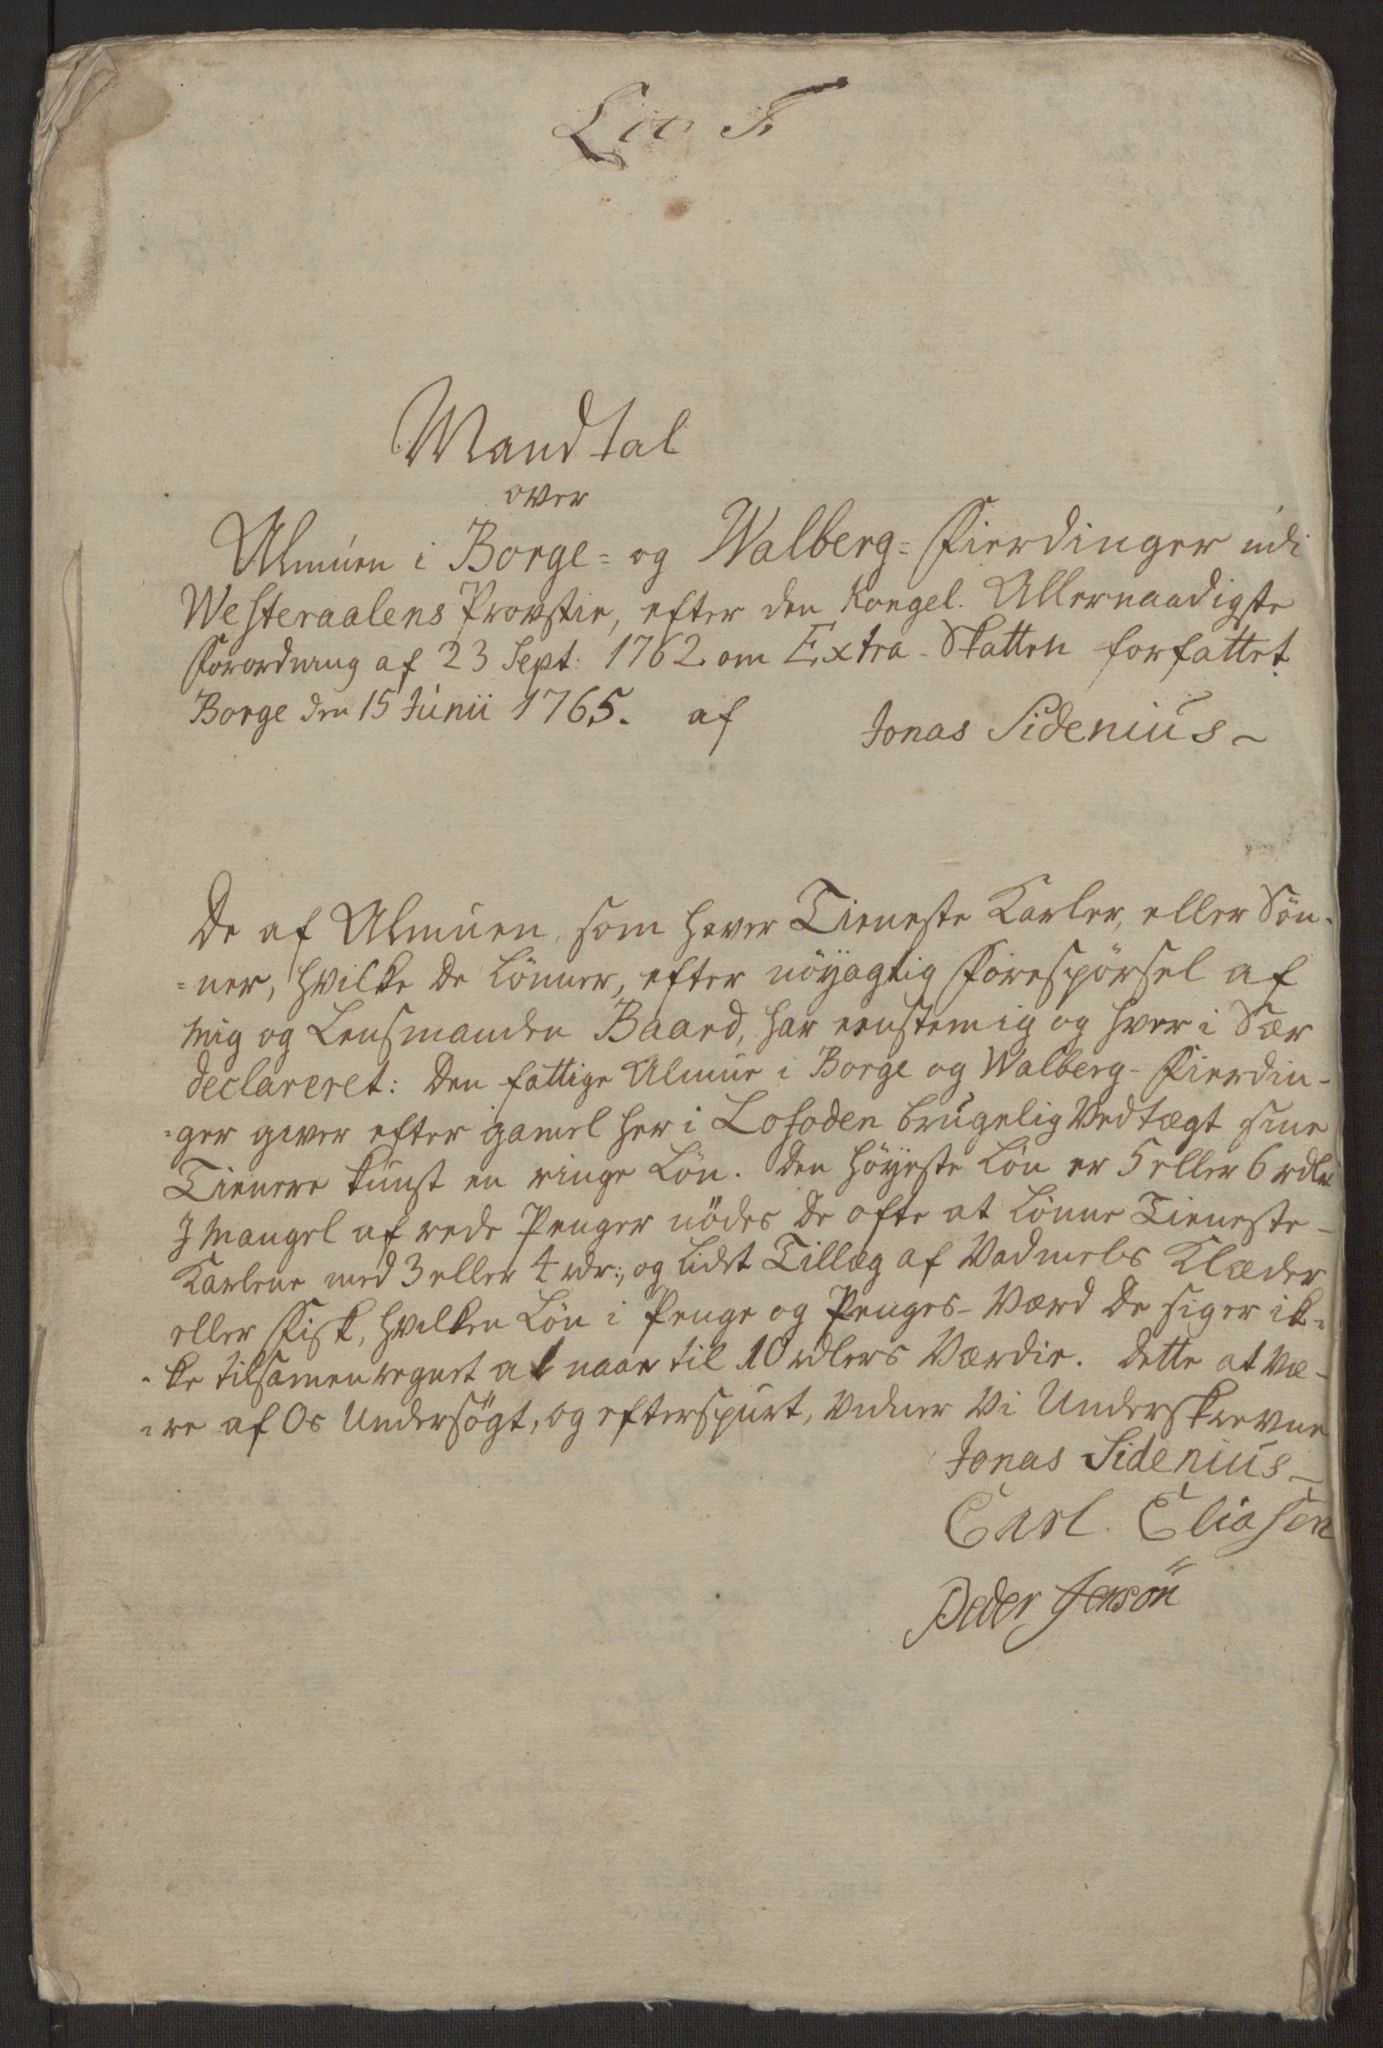 Lit F
Mandtal
over
Almuen i Borge- og Walberg- Fierdinger udi
Westeraalens Provstie, efter den Kongel. Allernaadigste
Forordning af 23 Sept: 1762 om Extra-Skatten forfattet
Borge den 15 Junii 1765. af Jonas Sidenius
De af Almuen, som haver Tieneste Karler, eller Søn-
-ner, hvilke de lönner, efter nöyagtig Forespörsel af
mig og Lensmanden Baard, har eenstemig og hver i Sær
declareret: Den fattige Almue i Borge og Walberg-Fierdin-
-ger giver efter gamel her i Lofoden brugelig Vedtægt sine
Tienere kunst en ringe Lön. Den höyeste Lön er 5 eller 6 rdlr
I Mangel af rede Penger nödes de ofte at lönne Tieneste-
Karlene med 3 eller 4 rdr:, og lidet Tillæg af Vadmels Klæder
eller Fisk, hvilken Lön i Penge og Penges-Værd de siger ik-
-ke tilsamenregnet at naae til 10 rdlers Værdie. Dette at væ-
-re af Os Undersögt, og efterspurt, vidner Vi Underskrevne
Jonas Sidenius
Carl. Eliasen
Peder Jensön